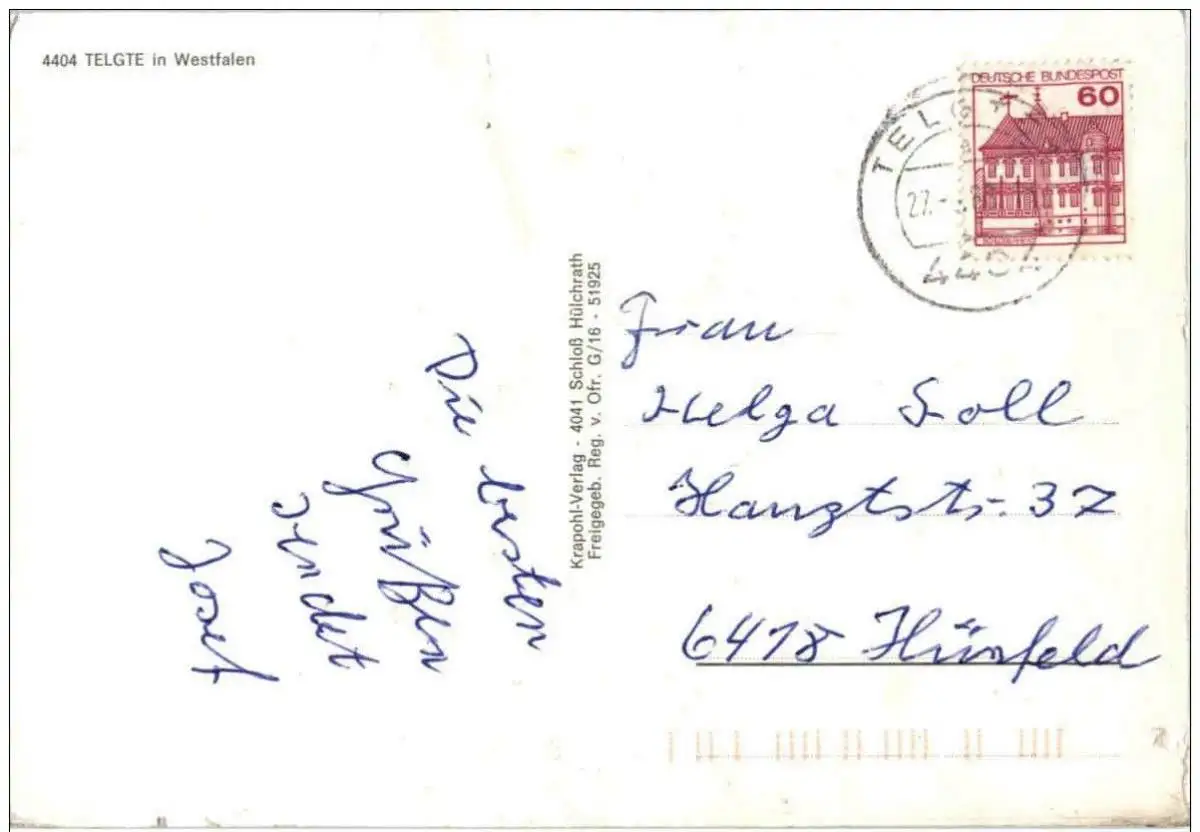 4404 TELGTE in Westfalen
DEUTSCHE BUNDESPOST
60
TELG
27.
Krapohl-Verlag - 4041 Schloß Hülchrath
Freigegeb. Reg. v. Ofr. G/16 - 51925
Die besten
Grüßen
sendet
Josef
Frau
Helga Soll
Hauptstr. 37
6418 Hünfeld